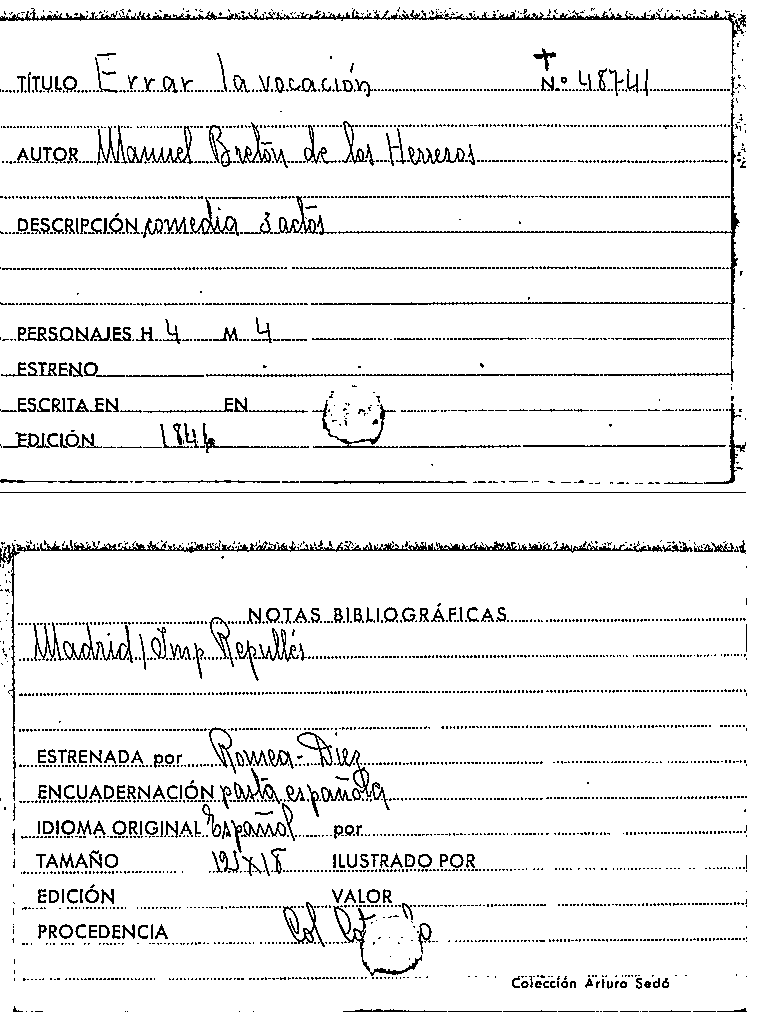 TÍTULO Errar la vocación
+
Nº 48741
AUTOR Manuel Bretón de los Herreros
DESCRIPCIÓN comedia 3 actos
PERSONAJES H 4 M 4
ESTRENO
ESCRITA EN EN
EDICIÓN 1846
NOTAS BIBLIOGRÁFICAS
Madrid/Imp Repullés
ESTRENADA por Romea-Díez
ENCUADERNACIÓN pasta española
IDIOMA ORIGINAL Español por
TAMAÑO ILUSTRADO POR
EDICIÓN VALOR
PROCEDENCIA Col
Colección Arturo Sedó